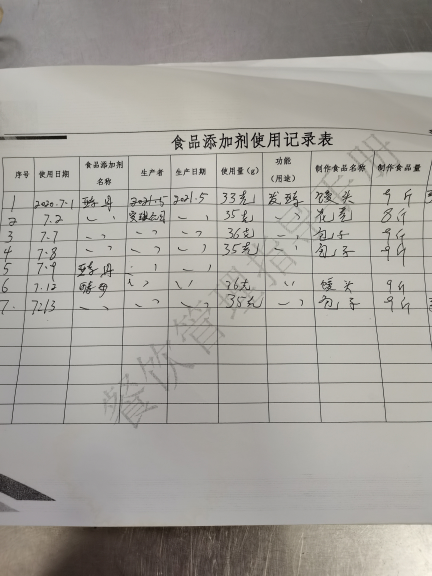 食品添加剂使用记录表
序号 使用日期 食品添加剂名称 生产者 生产日期 使用量（g） 功能（用途） 制作食品名称 制作食品量
1 2020.7.1 2021.5 2021.5 33克 发酵 馒头 9斤
2 7.2 〃 〃 35克 〃 花卷 8斤
3 7.7 〃 〃 〃 36克 〃 包子 9斤
4 7.8 〃 〃 〃 35克 〃 包子 9斤
5 7.9 〃 〃
6 7.12 〃 〃 36克 〃 馒头 9斤
7. 7.13 〃 〃 〃 35克 〃 包子 9斤
餐饮管理指导手册